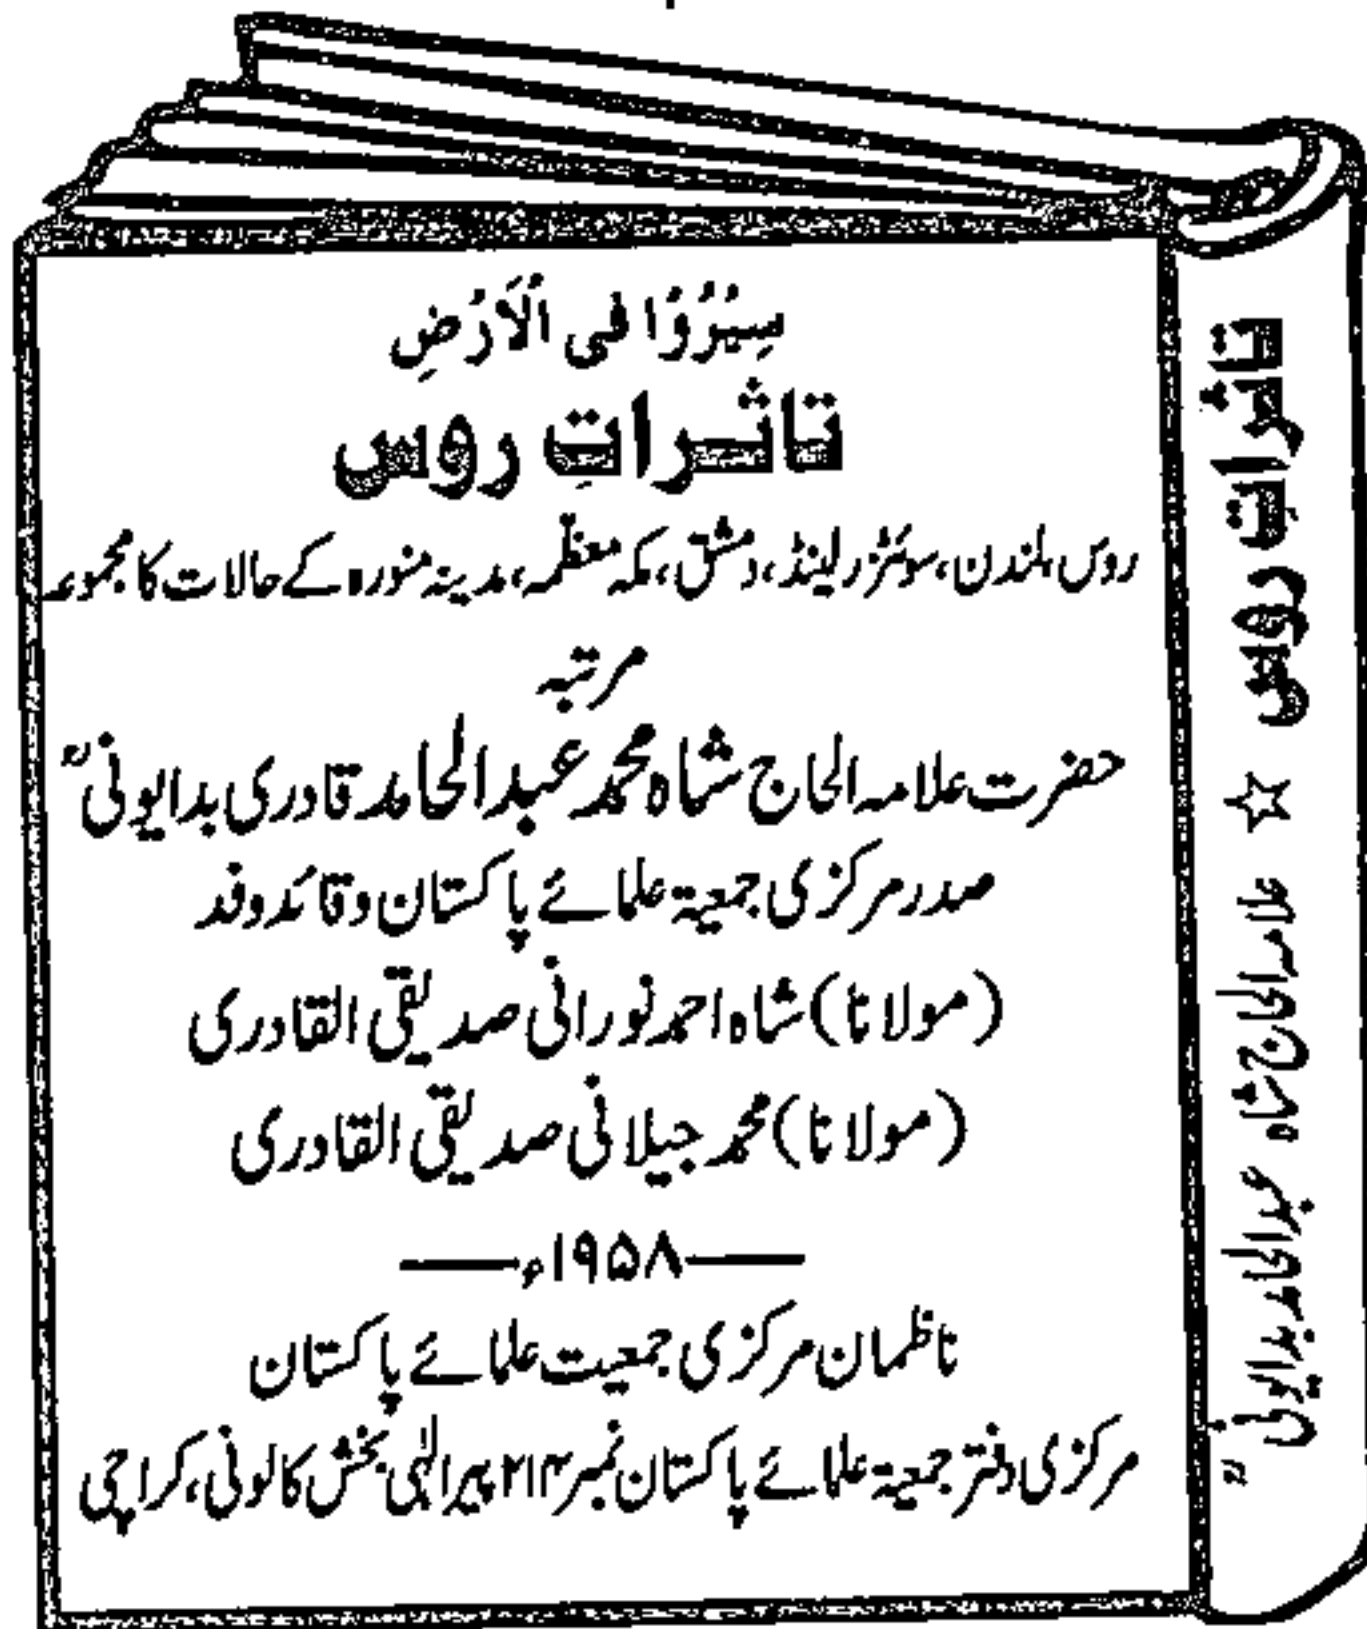 سِیۡرُوۡا فِی الۡاَرۡضِ
تاثراتِ روس
روس،لندن،سوئٹزرلینڈ،دمشق،مکہ معظّمہ،مدینہ منورہ کے حالات کا مجموعہ
مرتبہ
حضرت علامہ الحاج شاہ محمد عبدالحامد قادری بدایونیؒ
صدر مرکزی جمعیۃ علمائے پاکستان و قائد وفد
(مولانا) شاہ احمد نورانی صدیقی القادری
(مولانا) محمد جیلانی صدیقی القادری
—۱۹۵۸ء—
ناظمان مرکزی جمعیت علمائے پاکستان
مرکزی دفتر جمعیۃ علمائے پاکستان نمبر ۲۱۴ پیر الٰہی بخش کالونی، کراچی
تاثراتِ روس ☆ علامہ الحاج شاہ عبدالحامد بدایونیؒ